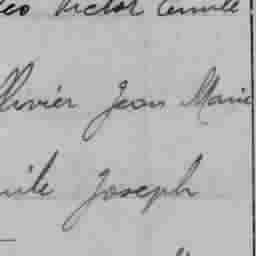 Victor Camille
Olivier Jean Marie
Joseph